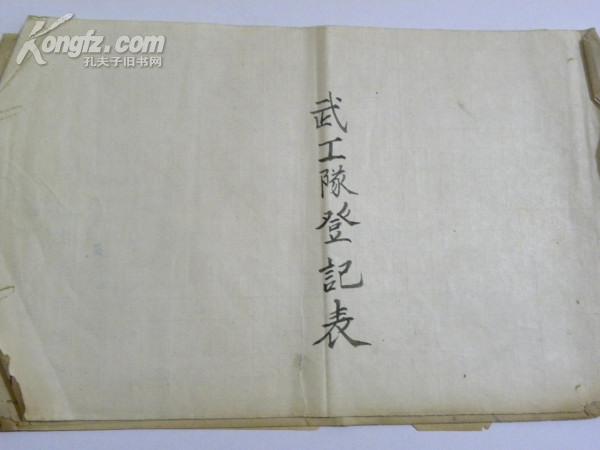 Kongfz.com
孔夫子旧书网
武工隊登記表